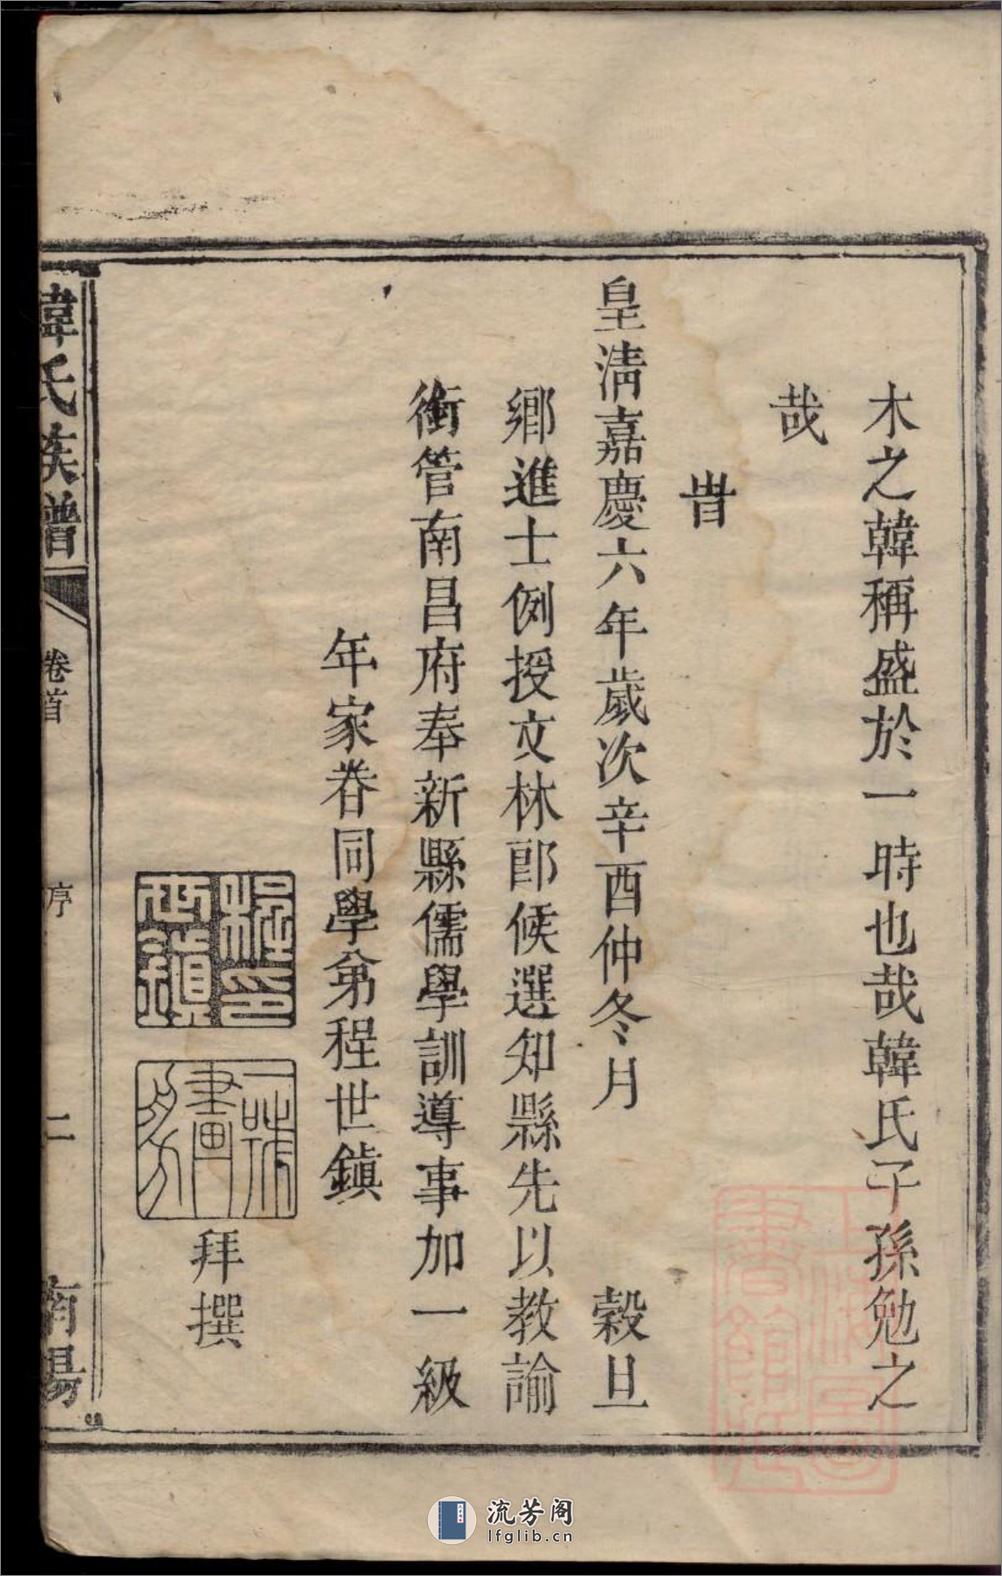 木之韓稱盛於一時也哉韓氏子孫勉之
哉
旹
皇清嘉慶六年歲次辛酉仲冬月 穀旦
鄉進士例授文林郎候選知縣先以教諭
銜管南昌府奉新縣儒學訓導事加一級
年家眷同學弟程世鎮
程印世鎮
拜撰
韓氏族譜
卷首
序
二
南陽
上海圖書館藏
流芳阁
lfglib.cn